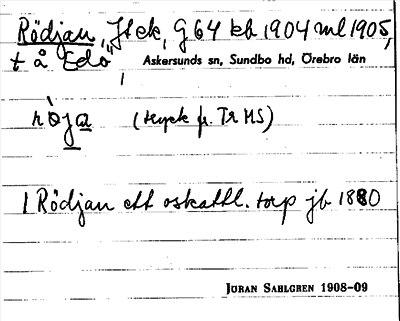 Rödjan, Jtek, G 64 kb 1904 ml 1905,
t å Edö" Askersunds sn, Sundbo hd, Örebro län
röja (tryck fr. Tr MS)
1 Rödjan ett oskattl. torp jb 1880
JURAN SAHLGREN 1908-09